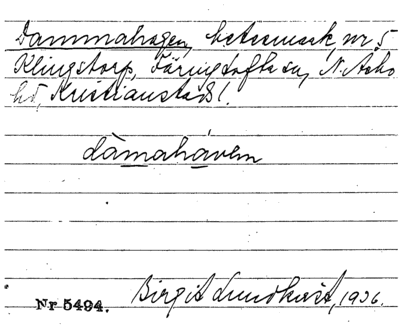 Dammahagen, betesmark, nr 5
Klingstorp, Färingtofta sn, N. Åsbo
hd, Kristianstads l.
dàmahávem
Birgit Lundkvist, 1936.
Nr 5494.